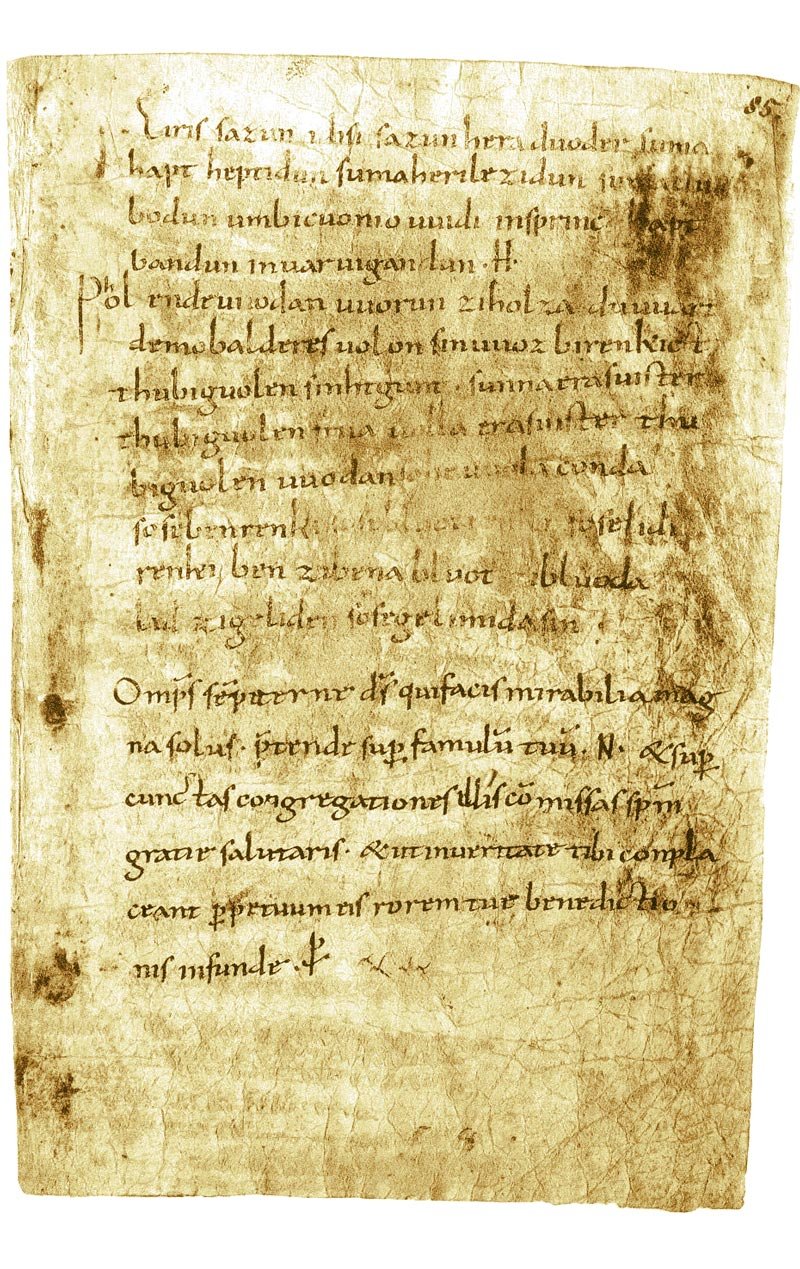 85
Eiris sazun idisi sazun hera duoder suma
hapt heptidun suma heri lezidun suma clu
bodun umbicuonio uuidi insprinc hapt
bandun inuar uigandun · H ·
Phol ende uuodan uuorun zi holza du uuart
demo balderes uolon sin uuoz birenkict
thu biguolen sinhtgunt · sunna era suister
thu biguolen friia uolla era suister thu
biguolen uuodan so he uuola conda
sose benrenki sose bluotrenki sose lidi
renki ben zi bena bluot zi bluoda
lid zi geliden sose gelimida sin ·
Omp̅s sēpiterne d̅s qui facis mirabilia mag
na solus · p̅tende sup̱ famulū tuū · N · & sup̱
cunctas congregationes illis cō missas sp̅m
gratie salutaris · & ut in ueritate tibi conpla
ceant p̱petuum eis rorem tue benedictio
nis infunde · p̱